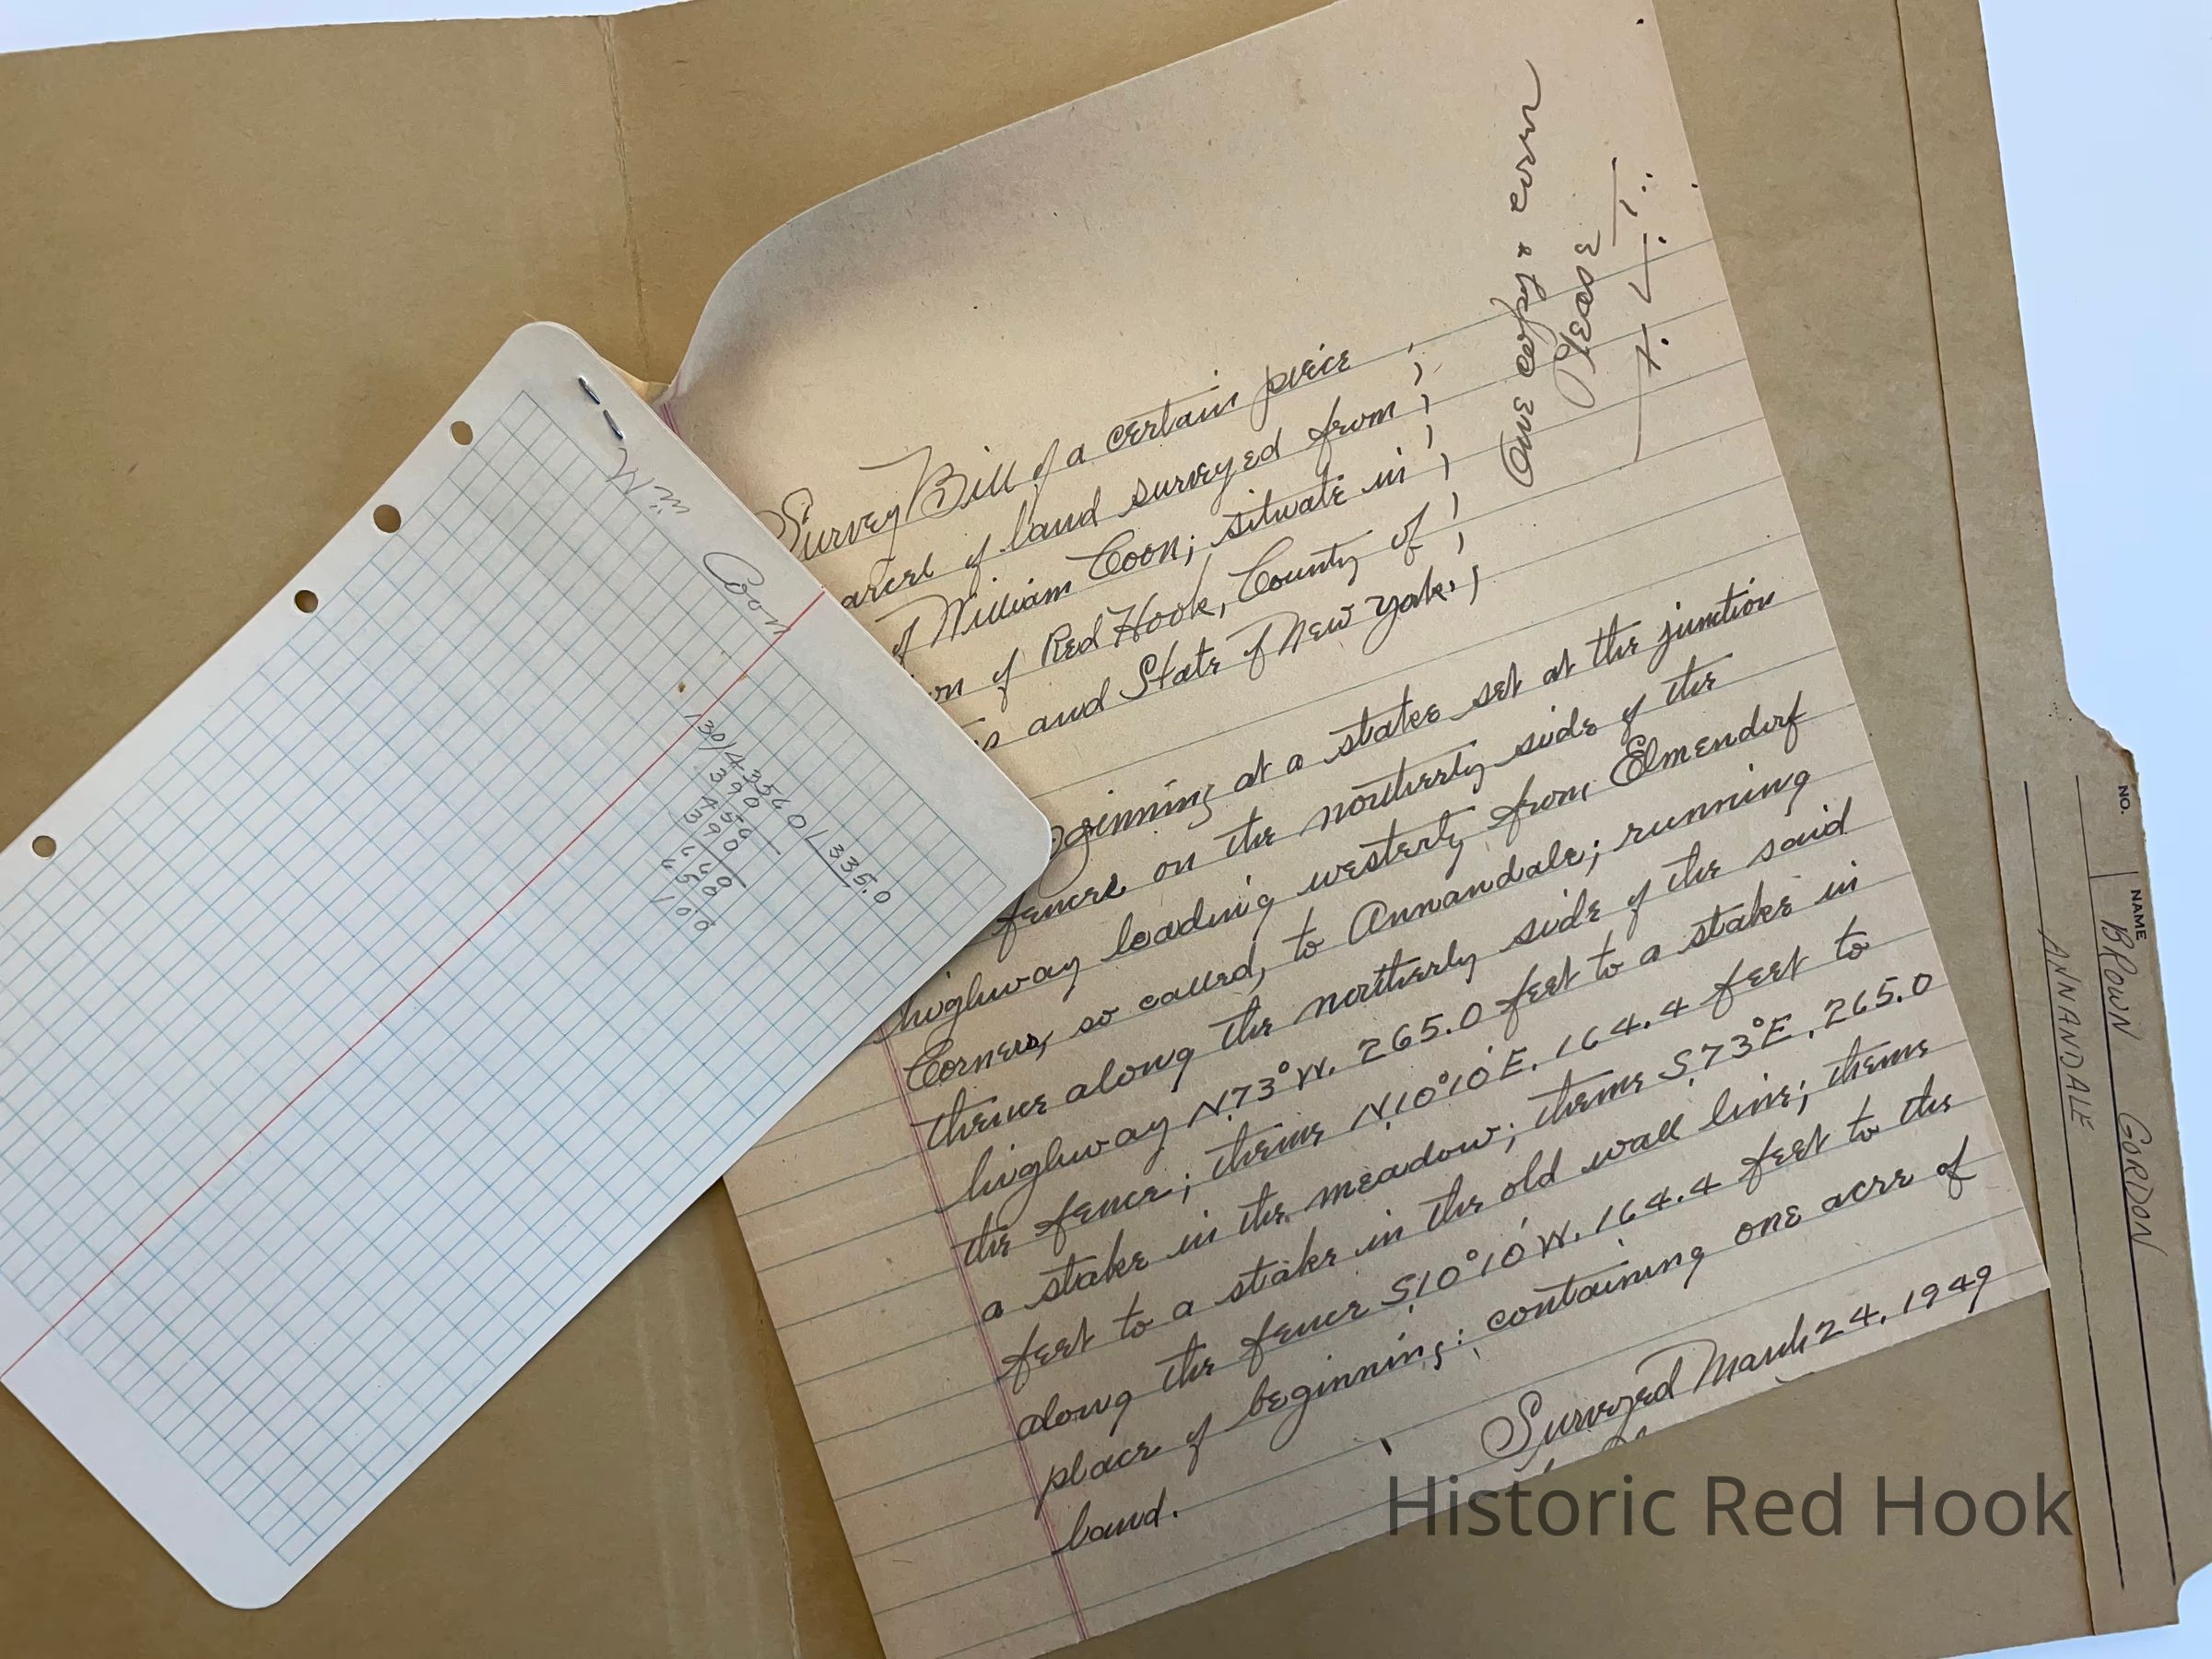 Survey Bill of a certain piece
arcel of land surveyed from
of William Coon; situate in
wn of Red Hook, County of
ss and State of New York.
One copy & corn
Please
ginning at a stake set at the junction
fences on the northerly side of the
highway leading westerly from Elmendorf
Corners, so called, to Annandale; running
thence along the northerly side of the said
highway N73°W. 265.0 feet to a stake in
the fence; thence N10°10'E. 164.4 feet to
a stake in the meadow; thence S73°E. 265.0
feet to a stake in the old wall line; thence
along the fence S10°10'W. 164.4 feet to the
place of beginning: containing one acre of
land.
Surveyed March 24, 1949
Coon
130/43560/335.0
390
456
390
660
650
100
NO.
NAME
BROWN GORDON
ANNANDALE
Historic Red Hook